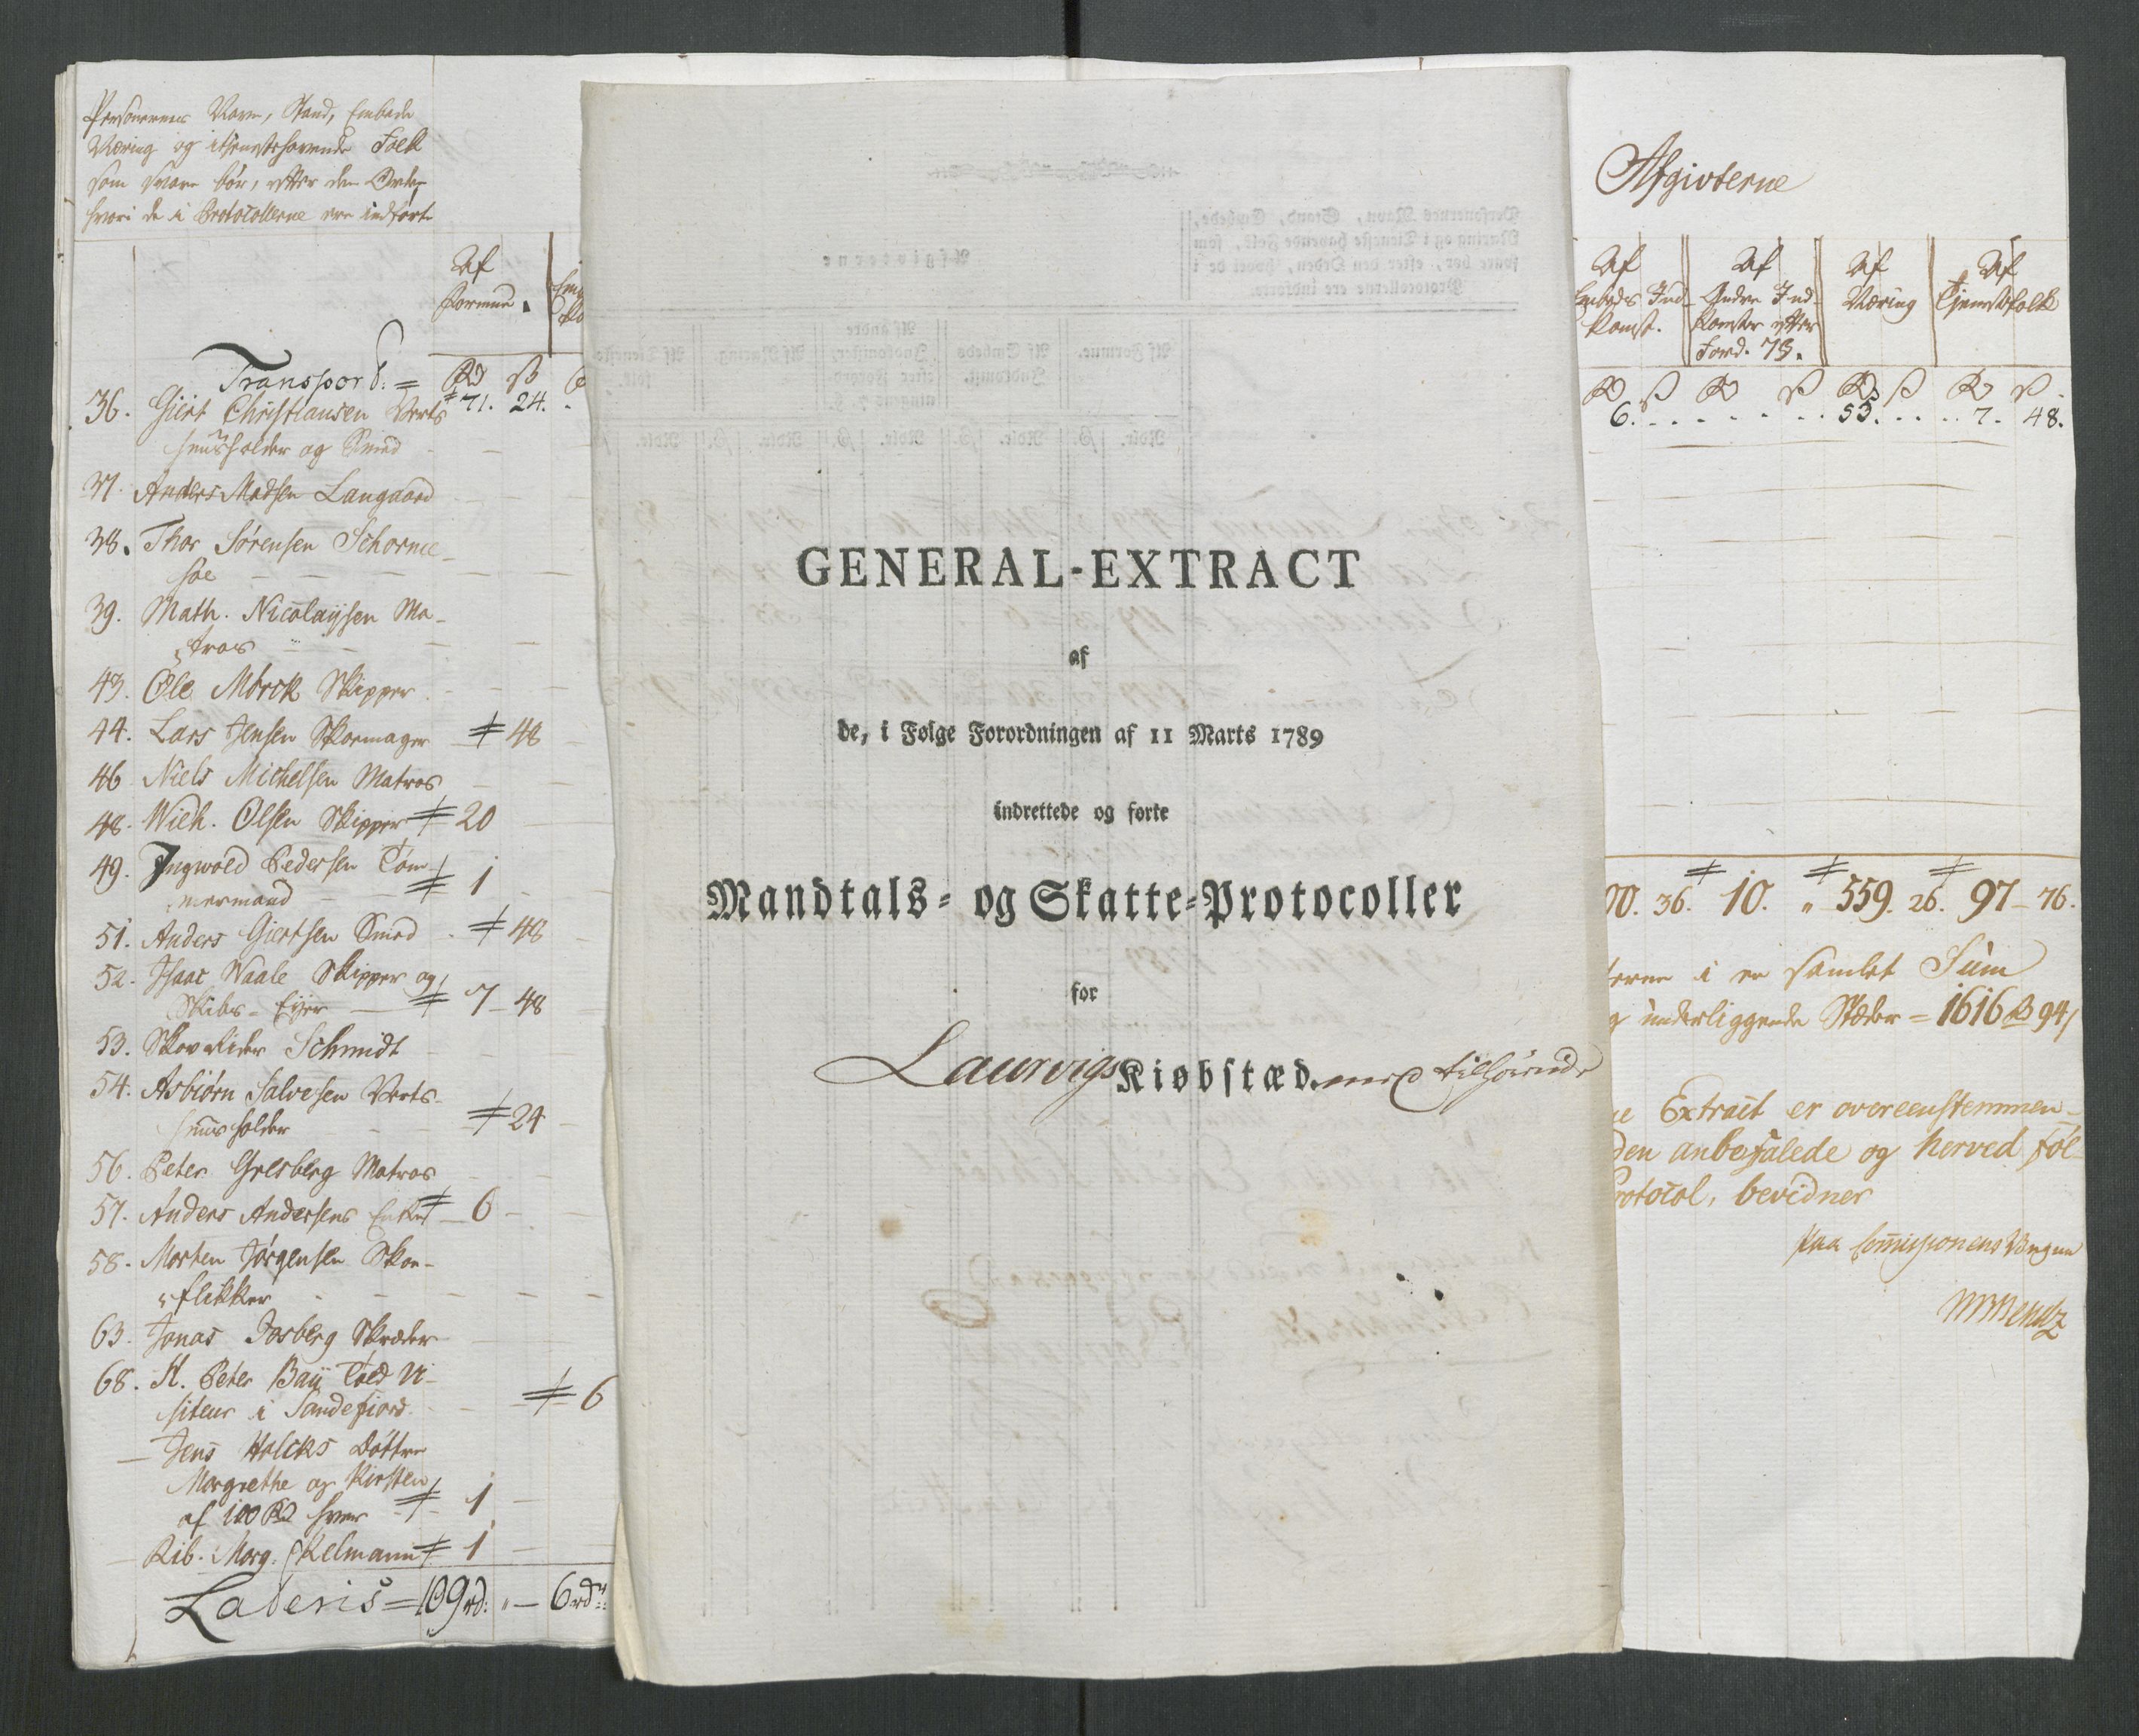 Personernes Navn, Stand, Embede
Næring og itjenstehavende Folk
som svare bør, efter den Orden
hvori de i Protocollerne ere indført
Af
Formue.
Transport. = Rd ß
36. Giert Christiansen Verts 71. 24.
huusholder og Smed
37. Anders Madsen Langaard
38. Thor Sørensen Schorme-
soe
39. Math. Nicolaysen Ma-
tros
43. Ole Mörck Skipper
44. Lars Jensen Skoemager 48
46 Niels Michelsen Matros
48. Wich. Olsen Skipper 20
49. Ingwold Pedersen Töm-
mermand 1
51. Anders Giertsen Smed 48
52. Isaac Waale Skipper og
Skibs-Eyer 7-48
53. Skovrider Schmidt
54. Asbiörn Salvesen Verts-
huusholder 24
56. Peter Gresberg Matros
57. Anders Andersens Enke 6
58. Morten Jörgensen Skoe-
flikker
63. Jonas Fosberg Skræder
68. H. Peter Baÿ Told Vi-
siteur i Sandefiord 6
Jens Holcks Döttre
Margrethe og Kirsten
af 100 Rd hver 1
Rib. Marg. Skelmann 1
Lateris = 109 rd. " - 6 rd "
GENERAL-EXTRACT
af
de, i Følge Forordningen af 11 Marts 1789
indrettede og førte
Mandtals- og Skatte-Protocoller
for
Laurvigs Kiøbstæd. med tilhørende
Afgivterne
Af Af Af Af
Embeds Ind- Andre Ind- Næring Tjenestefolk
komst. komster efter
Ford. 7 §.
Rd ß Rd ß Rd ß Rd ß
6. 53. 7. 48.
00. 36. 10. " 559. 26. 97-76.
terne i en samlet Sum
g underliggende Stæder = 1616 Rd 94 ß
ne Extract er overeenstemmen-
den anbefalede og herved föl-
rotocol, bevidner
paa Commissionens Vegne